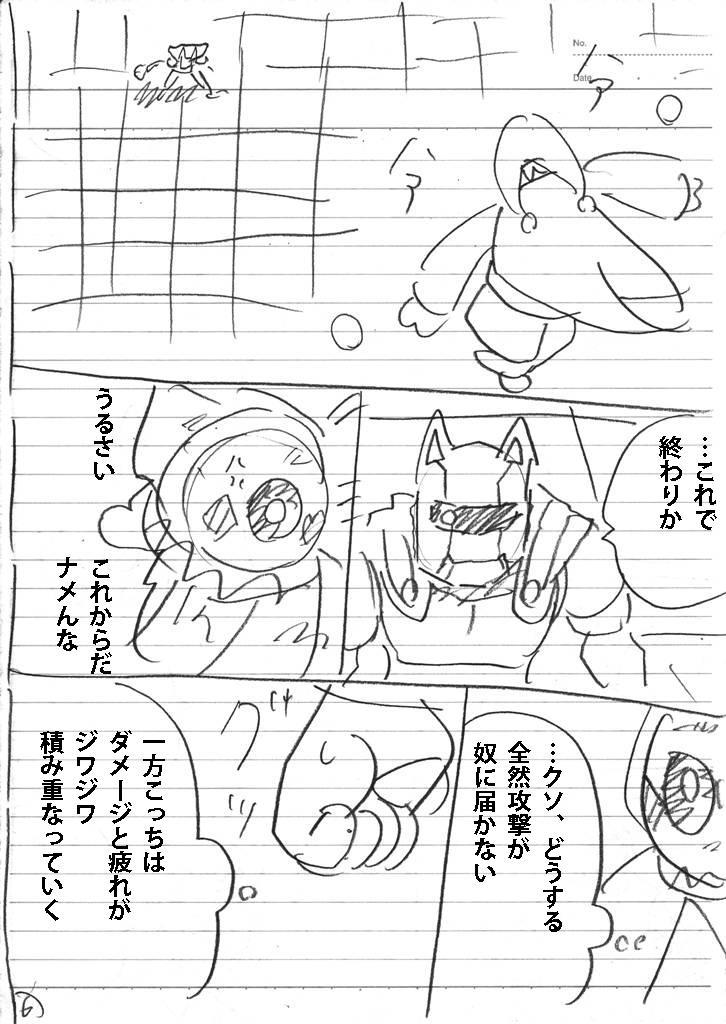 No.
Date
…これで
終わりか
うるさい
これからだ
ナメんな
…クソ、どうする
全然攻撃が
奴に届かない
グッ
一方こっちは
ダメージと疲れが
ジワジワ
積み重なっていく
6